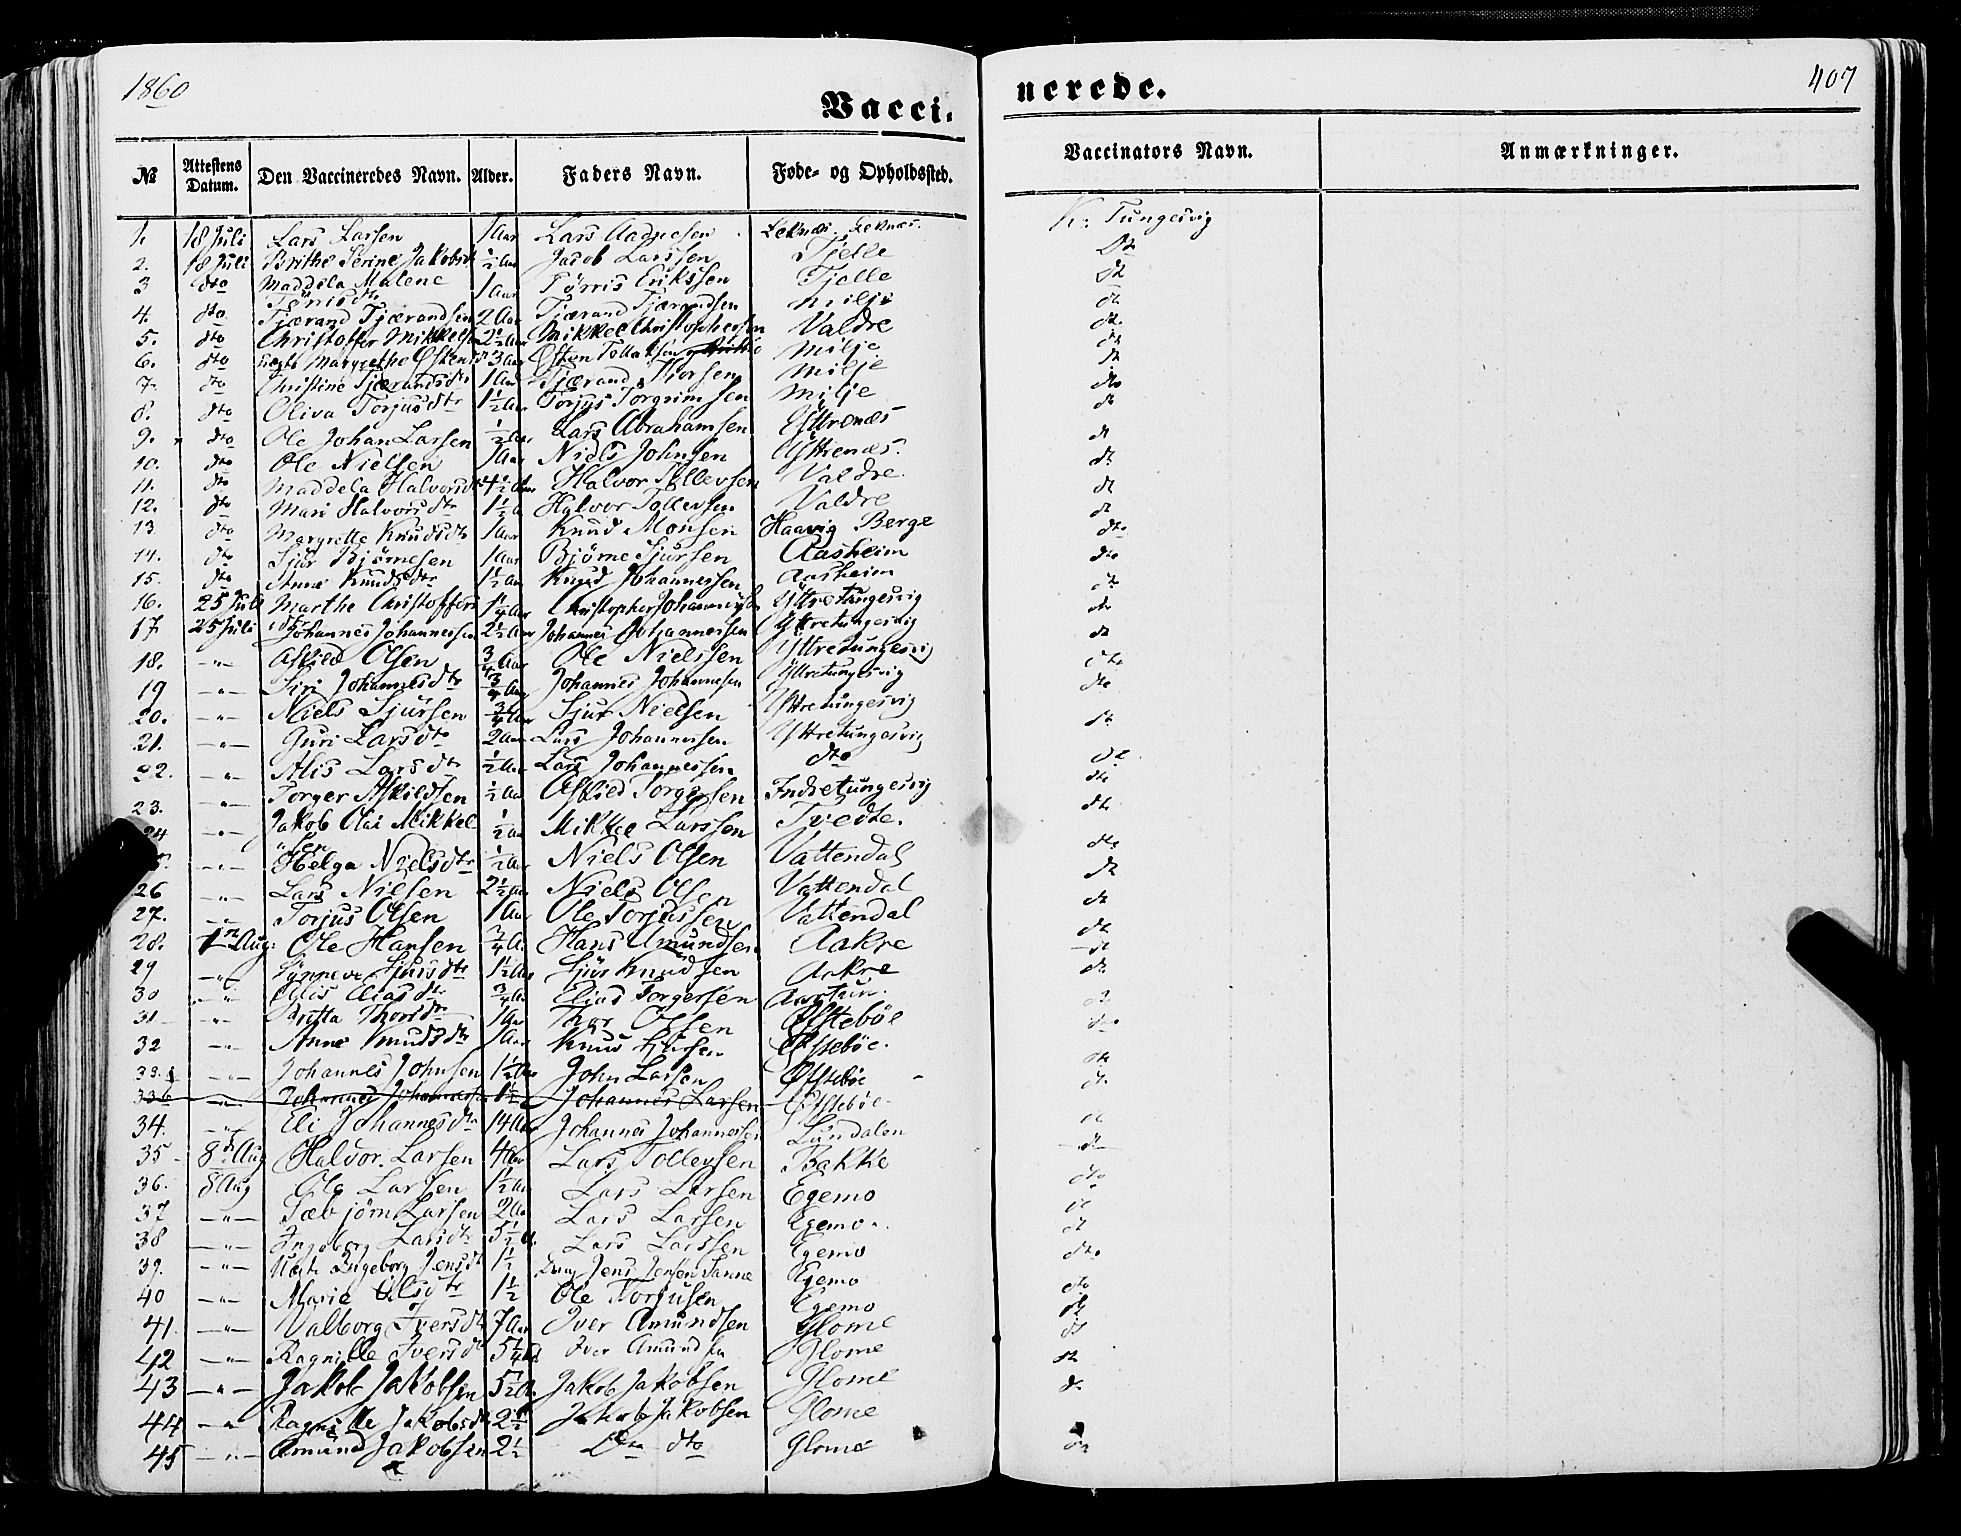 1860
Vacci-
nerede.
407
№ Attestens Datum. Den Vaccineredes Navn. Alder. Faders Navn. Føde- og Opholdssted. Vaccinators Navn. Anmærkninger.
1. 18 Juli Lars Larsen 1 Aar Lars Leknæs. Leknæs. K: Tungesvig
2. 18 Juli Brithe Serine Jakobsdt ½ Aar Jacob Larssen Tjelle dt
3 dto Maddela Malene Tørrisdtr 1 Aar Tørris Erikssen Tjelle dt
4. dto Tjærand Tjærandsen 2 Aar Tjærand Tjærandsen Milje dt
5. dto Christoffer Mikkelsen 2½ Aar Mikkel Christophersen Valdre dt.
6. dto Margrethe Østensdt 3 Aar Østen Tollaksen Milje dt
7. dto Christine Tjærandsdtr 1 Aar Tjærand Milje dt
8. dto Oliva Torjusdtr 1½ Aar Torjus Torgrimsen Milje dto
9. dto Ole Johan Larsen ½ Aar Lars Abrahamsen Yttrenæs dt
10. dto Ole Nielsen 1 Aar Niels Johnsen Yttrenæs. dt
11. dto Maddela Halvorsdt 4½ Aar Halvor Tollevsen Valdre dt.
12. dto Mari Halvorsdtr 1½ A Halvor Tollevsen Valdre dt
13 dto Margrette Knudsdtr 1 Aar Knud Monsen Haavig Berge dt
14. dto Sjur Bjørnesen 1 Aar Bjørne Sjursen Aasheim dto
15. dto Anne Knudsdtr 1½ Aar Knud Johannessen Aasheim dto
16. 25 Juli Marthe Christoffersdtr 1¼ Aar Christopher Johannessen Yttretungesvig dt
17 25 Juli Johannes Johannessen 2½ Aar Johannes Johannessen Yttretungesvig dt
18. —"— Askild Olsen ¾ Aar Ole Nielssen Yttretungesvig dt
19 —"— Siri Johannesdtr ¾ Aar Johannes Johannesen Yttretungesvig dt
20. —"— Niels Sjursen ¾ Aar Sjur Nielsen Yttretungesvig dto
21. —"— Guri Larsdtr 2 Aar Lars Johannessen Yttretungesvig dt
22. —"— Alis Larsdtr ½ Aar Lars Johannessen dto dt
23. —"— Torger Askildsen ½ Aar Askild Torgersen Indretungesvig dt
24 —"— Jakob Olai Mikkelsen ½ Aar Mikkel Larssen Tvedte. dt
—"— Helga Nielsdtr ½ Aar Niels Olsen Vattendal dt
26 —"— Lars Nilsen 2½ Aar Niels Olsen Vattendal dt
27. —"— Torjus Olsen 1 Aar Ole Torjussen Vattendal dt
28. 1n Aug: Ole Hansen ¾ A. Hans Amundsen Aakre dt
29 —"— Synneve Sjursdtr 1½ Aar Sjur Knudsen Aakre dt
30 —"— Alis Eliasdtr ¾ A Elias Torgersen Aartun. dt
31 —"— Britta Thorsdtr 1 Aar Thor Olsen Øfstebøe dt
32 —"— Anne Knudsdtr 1 Aar Knud Sjursen Øfstebøe. dto
33 —"— Johannes Johnsen 1½ Aar John Larsen Øfstebøe dt
33b —"— Johannes Johannessen 1½ Johannes Larsen Øfstebøe dt.
34. —"— Eli Johannesdtr 14 Aar Johannes Johannessen Lundalen dt
35 8d Aug Halvor Larsen 4 Aar Lars Tollevsen Bakke dt
36. 8 Aug Ole Larsen 1½ Aar Lars Larsen Egemo dto
37 —"— Sæbjørn Larsen 2 Aar Lars Larsen Egemo dt
38 —"— Ingeborg Larsdtr 5½ A. Lars Larssen Egemo dt
39. —"— Ingeborg Jensdt 1½ Jens Jensen Sanne Egemo dto
40 —"— Marie Olsdtr 1½ Ole Torjusen Egemo dto
41. —"— Valborg Iversdt 7 Aar Iver Amundsen Glome dt
42 —"— Ragnille Iversdt 5¼ A Iver Amundsen Glome dt
43 —"— Jakob Jakobsen 5½ A. Jakob Jakobsen Glome dt
44 —"— Ragnille Jakobsdt 2½ Jakob Jakobsen Glome d.
45 —"— Amund Jakobsen 2½ Dto dto Glome dt